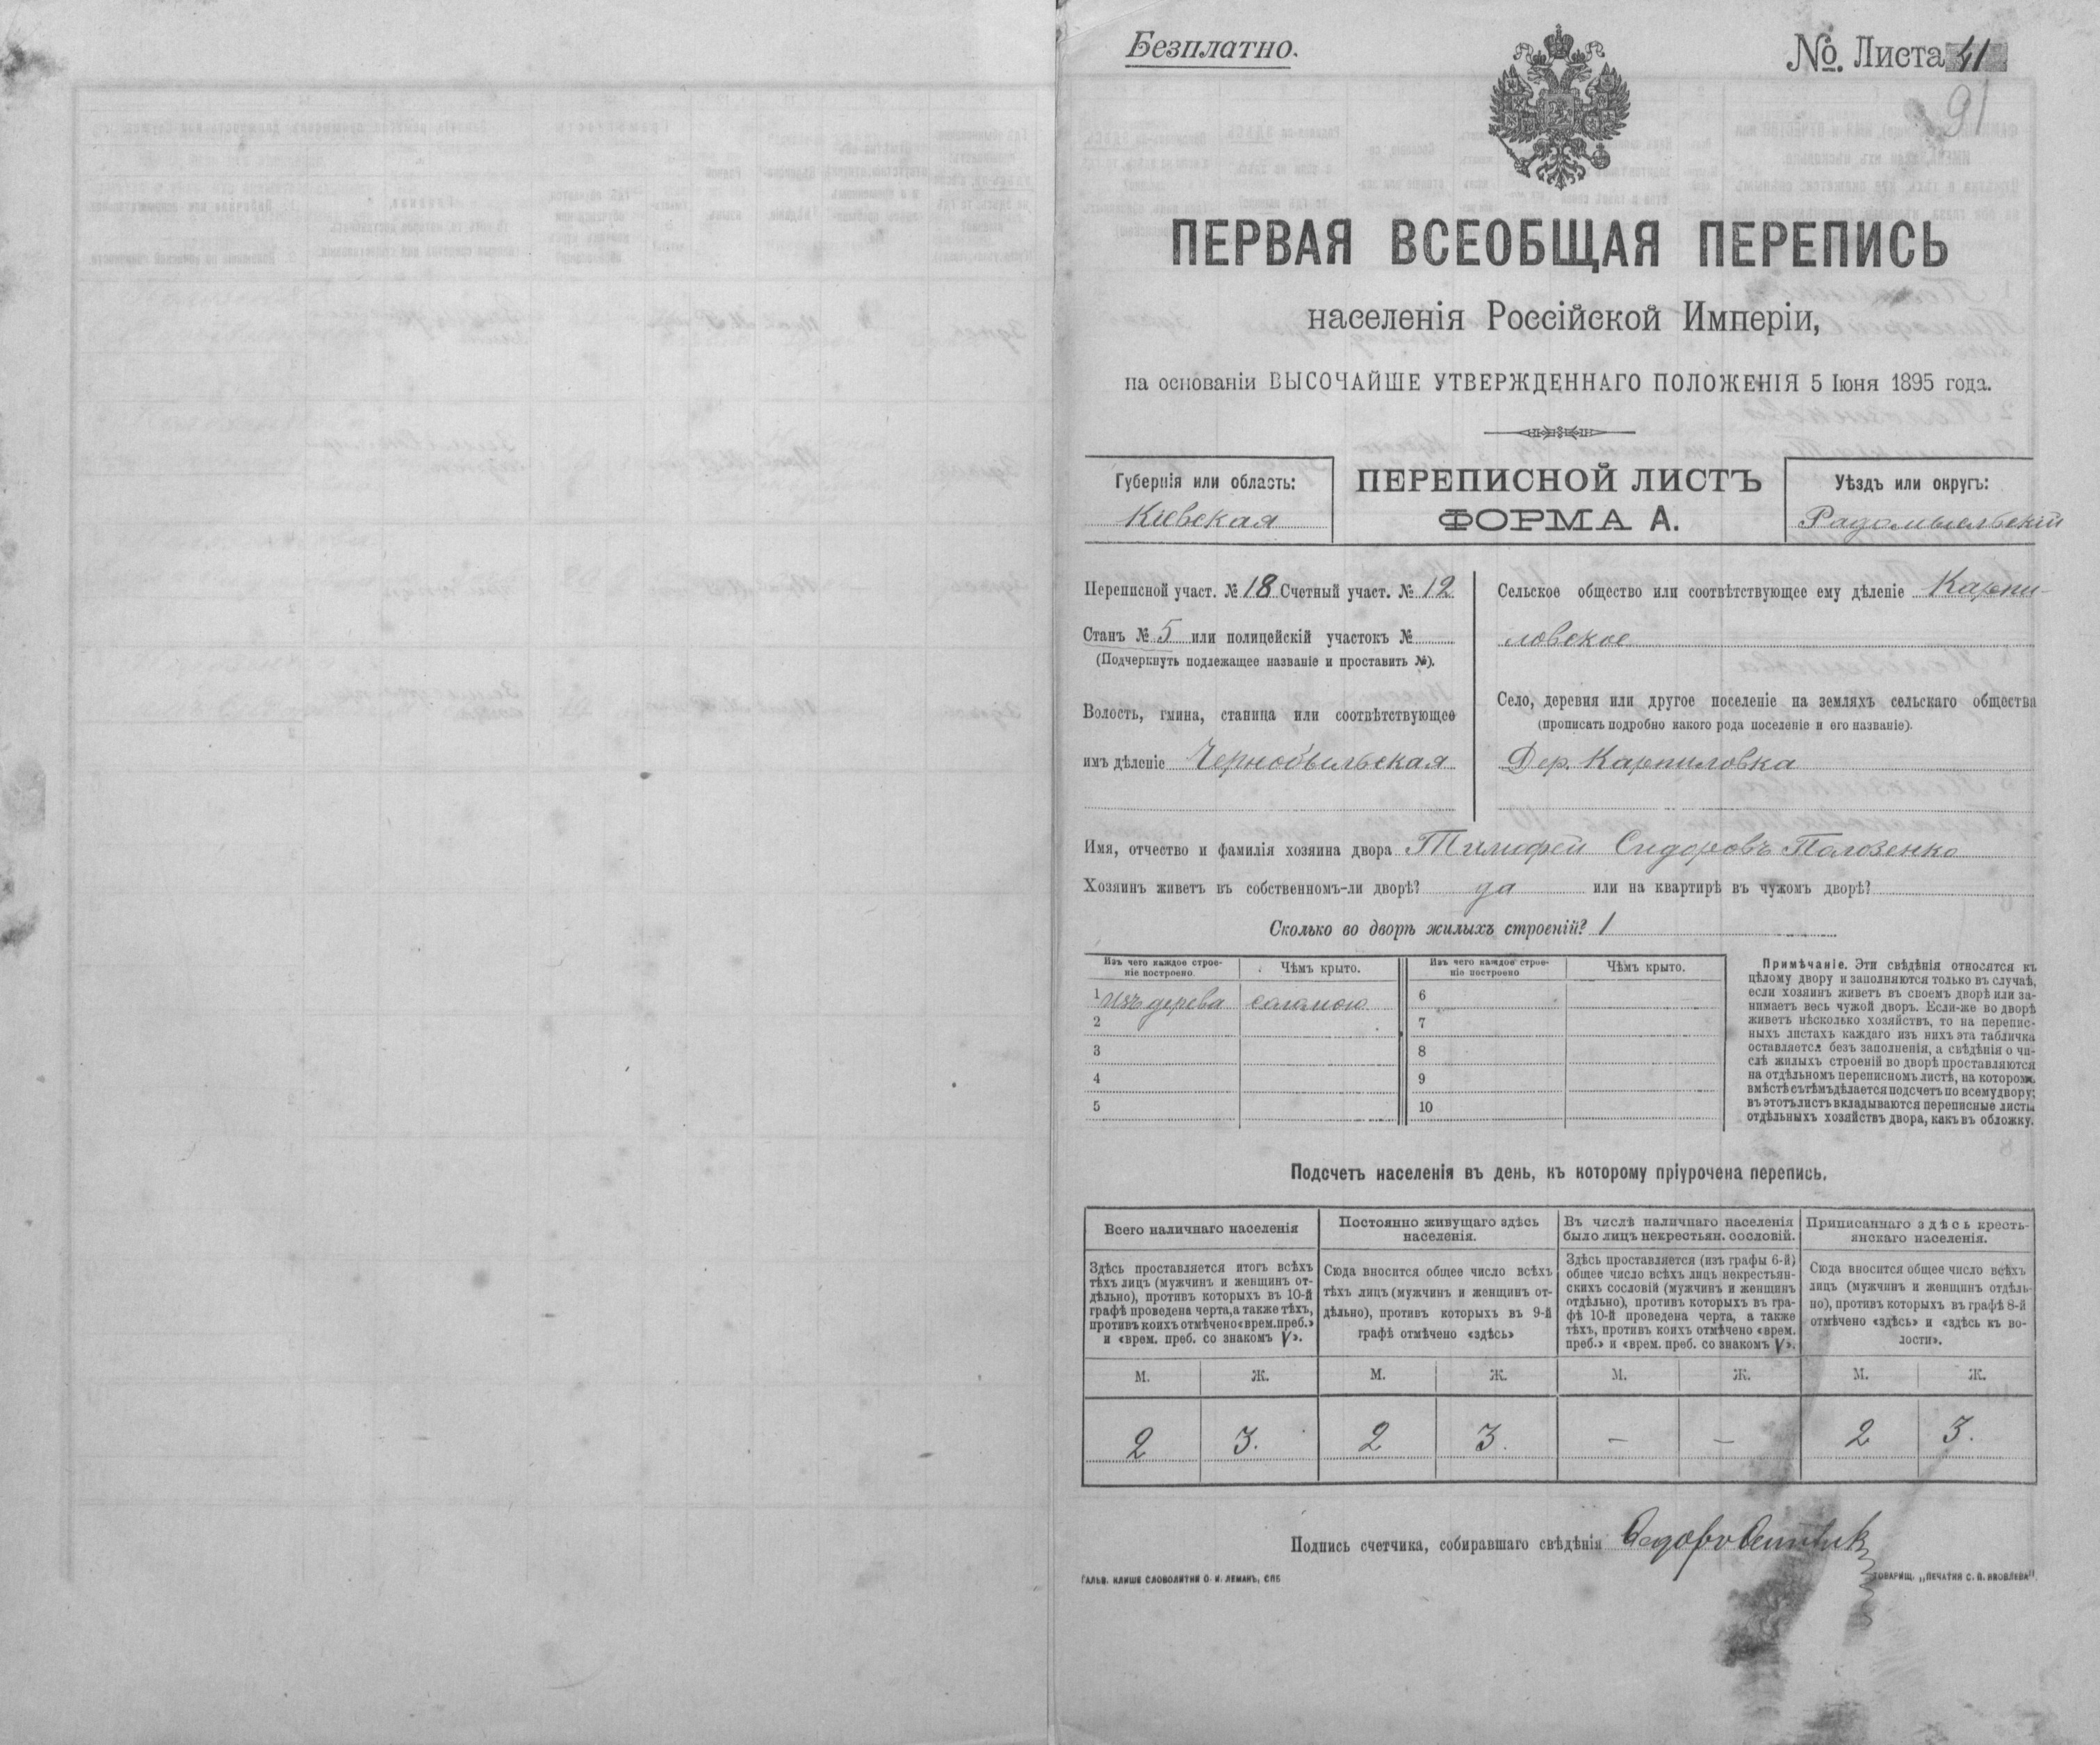 Безплатно.
№. Листа 41
91
ПЕРВАЯ ВСЕОБЩАЯ ПЕРЕПИСЬ
населенія Россійской Имперіи,
на основаніи ВЫСОЧАЙШЕ УТВЕРЖДЕННАГО ПОЛОЖЕНІЯ 5 Іюня 1895 года.
Губернія или область:
Кіевская
ПЕРЕПИСНОЙ ЛИСТЪ
ФОРМА А.
Уѣздъ или округъ:
Радомысльскій
Переписной участ. № 18 Счетный участ. № 12
Станъ № 5 или полицейскій участокъ №
(Подчеркнуть подлежащее названіе и проставить №).
Волость, гмина, станица или соотвѣтствующее
имъ дѣленіе Чернобыльская
Сельское общество или соотвѣтствующее ему дѣленіе Карпи-
ловское
Село, деревня или другое поселеніе на земляхъ сельскаго общества
(прописать подробно какого рода поселеніе и его названіе).
Дер. Карпиловка
Имя, отчество и фамилія хозяина двора Тимофей Сидоровъ Полозенко
Хозяинъ живетъ въ собственномъ-ли дворѣ? да или на квартирѣ въ чужомъ дворѣ?
Сколько во дворѣ жилыхъ строеній? 1
Изъ чего каждое строе-
ніе построено.
Чѣмъ крыто.
Изъ чего каждое строе-
ніе построено
Чѣмъ крыто.
1 изъ дерева соломою
2
3
4
5
6
7
8
9
10
Примѣчаніе. Эти свѣдѣнія относятся къ
цѣлому двору и заполняются только въ случаѣ,
если хозяинъ живетъ въ своемъ дворѣ или за-
нимаетъ весь чужой дворъ. Если-же во дворѣ
живетъ нѣсколько хозяйствъ, то на перепис-
ныхъ листахъ каждаго изъ нихъ эта табличка
оставляется безъ заполненія, а свѣдѣнія о чи-
слѣ жилыхъ строеній во дворѣ проставляются
на отдѣльномъ переписномъ листѣ, на которомъ
вмѣстѣ съ тѣмъ дѣлается подсчетъ по всему двору;
въ этотъ листъ вкладываются переписные листы
отдѣльныхъ хозяйствъ двора, какъ въ обложку.
Подсчетъ населенія въ день, къ которому пріурочена перепись.
Всего наличнаго населенія
Здѣсь проставляется итогъ всѣхъ
тѣхъ лицъ (мужчинъ и женщинъ от-
дѣльно), противъ которыхъ въ 10-й
графѣ проведена черта, а также тѣхъ,
противъ коихъ отмѣчено «врем. преб.»
и «врем. преб. со знакомъ V».
Постоянно живущаго здѣсь
населенія.
Сюда вносится общее число всѣхъ
тѣхъ лицъ (мужчинъ и женщинъ от-
дѣльно), противъ которыхъ въ 9-й
графѣ отмѣчено «здѣсь»
Въ числѣ наличнаго населенія
было лицъ некрестьян. сословій.
Здѣсь проставляется (изъ графы 6-й)
общее число всѣхъ лицъ некрестьян-
скихъ сословій (мужчинъ и женщинъ
отдѣльно), противъ которыхъ въ гра-
фѣ 10-й проведена черта, а также
тѣхъ, противъ коихъ отмѣчено «врем.
преб.» и «врем. преб. со знакомъ V».
Приписаннаго здѣсь кресть-
янскаго населенія.
Сюда вносится общее число всѣхъ
лицъ (мужчинъ и женщинъ отдѣль-
но), противъ которыхъ въ графѣ 8-й
отмѣчено «здѣсь» и «здѣсь въ во-
лости».
М. Ж. М. Ж. М. Ж. М. Ж.
2 3. 2 3. — — 2 3.
Подпись счетчика, собиравшаго свѣдѣнія
ГАЛЬВ. КЛИШЕ СЛОВОЛИТНИ О. И. ЛЕМАНЪ, СПБ
ТОВАРИЩ. „ПЕЧАТНЯ С. П. ЯКОВЛЕВА".